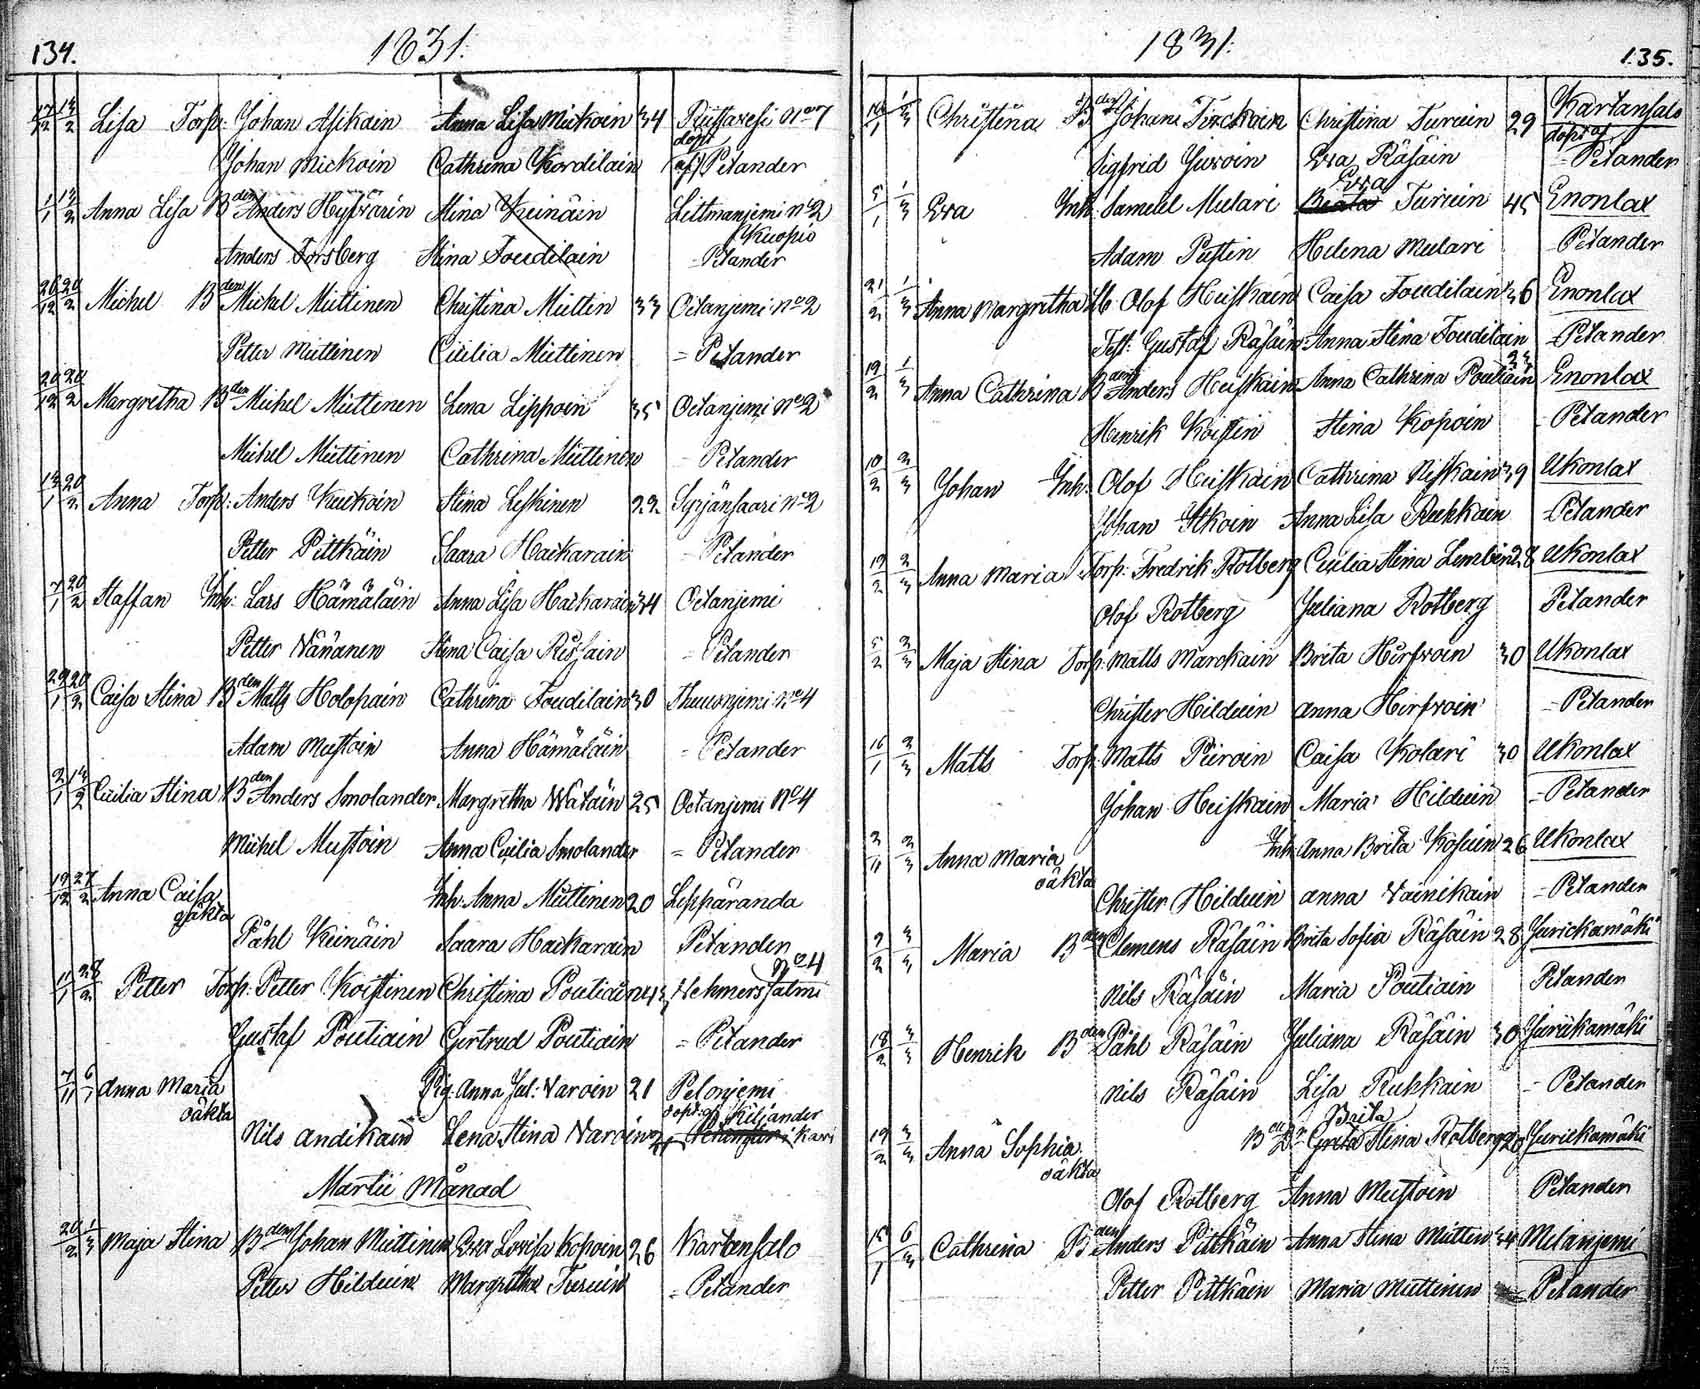 134. 1831.
17/12 13/2 Lisa Torp: Johan Asikain Anna Lisa Mickoin 34 No 7
dopt
Johan Mickoin Cathrina Kordilain af Petander
1/1 13/2 Anna Lisa Bden Anders Hyfvärin Stina Keinäin No 2
Kuopio
Anders Forsberg Stina Toudilain = Petander
26/12 20/2 Michel Bden Michel Miettinen Christina Miettin 33 Oetanjemi No 2
Petter Miettinen Cecilia Miettinen = Petander
20/12 20/2 Margretha Bden Michel Miettenen Lena Lippoin 35 Oetanjemi No 2
Michel Miettinen Cathrina Miettinen = Petander
13/1 20/2 Anna Torp: Anders Kuckoin Stina Leskinen 22 Syrjänsaari No 2
Petter Pittkäin Saara Hackarain = Petander
7/1 20/2 Staffan Inh: Lars Hämäläin Anna Lisa Hackarain 34 Oetanjemi
Petter Nänänen Stina Caisa Rissain = Petander
29/1 20/2 Caisa Stina Bden Matts Holopain Cathrina Toudilain 30 No 4
Adam Mustoin Anna Hämäläin = Petander
2/1 13/2 Cecilia Stina Bden Anders Smolander Margretha Watain 25 Oetanjemi No 4
Michel Mustoin Anna Cecilia Smolander = Petander
19/12 27/2 Anna Caisa Inh: Anna Miettinen 20 Leppäranda
oäkta
Påhl Keinäin Saara Hackarain Petander
No 4
11/1 28/2 Petter Torp: Petter Koistinen Christina Poutiain 43 Nehmersalmi
Gustaf Poutiain Gertrud Poutiain = Petander
7/11 6/1 Anna Maria Pig: Anna Jul: Varoin 21 Pelonjemi
oäkta dopt: af Kiljander
Nils Andikain Lena Stina Varoin
Martii Månad
20/2 1/3 Maja Stina Bden Johan Miettinen Eva Lovisa Kopoin 26 Kartansalo
Petter Hilduin Margretha Turuin = Petander
1831. 135.
1/3 Christina Bden Johan Tirckoin Christina Turuin 29 Kartansalo
dopt af
Sigfrid Juvoin Eva Räsäin = Petander
Eva
5/1 1/3 Eva Inh: Samuel Mulari Beata Turuin 45 Enonlax
Adam Pustin Helena Mulari = Petander
21/2 1/3 Anna Margretha Olof Heiskain Caisa Toudilain 36 Enonlax
Gustaf Räsäin Anna Stina Toudilain = Petander
23
19/2 1/3 Anna Cathrina Bden Anders Heiskain Anna Cathrina Poutiain Enonlax
Henrik Koistin Stina Kopoin = Petander
10/2 2/3 Johan Inh: Olof Heiskain Cathrina Niskain 39 Ukonlax
Johan Itkoin Anna Lisa Ruhkain = Petander
19/2 2/3 Anna Maria Torp: Fredrik Rotberg Cecilia Stina Lembin 28 Ukonlax
Olof Rotberg Juliana Rotberg Petander
5/2 2/3 Maja Stina Torp: Matts Marckain Brita Hirfvoin 30 Ukonlax
Christer Hilduin Anna Hirfvoin = Petander
16/1 2/3 Matts Torp: Matts Piiroin Caisa Kolari 30 Ukonlax
Johan Heiskain Maria Hilduin = Petander
2/11 2/3 Anna Maria Inh: Anna Brita Kosuin 26 Ukonlax
oäkta
Christer Hilduin Anna Vainikain = Petander
2/2 3/3 Maria Bden Clemens Räsäin Brita Sofia Räsäin 28 Jurickamäki
Nils Räsäin Maria Poutiain Petander
18/2 3/3 Henrik Bden Påhl Räsäin Juliana Räsäin 30 Jurickamäki
Nils Räsäin Lisa Ruhkain = Petander
Brita
19/2 3/3 Anna Sophia Greta Stina Rotberg 20 Jurickamäki
oäkta
Olof Rotberg Anna Mustoin Petander
15/1 6/3 Cathrina Bden Anders Pittkäin Anna Stina Miettin 34 Melanjemi
Petter Pittkäin Maria Miettinen = Petander